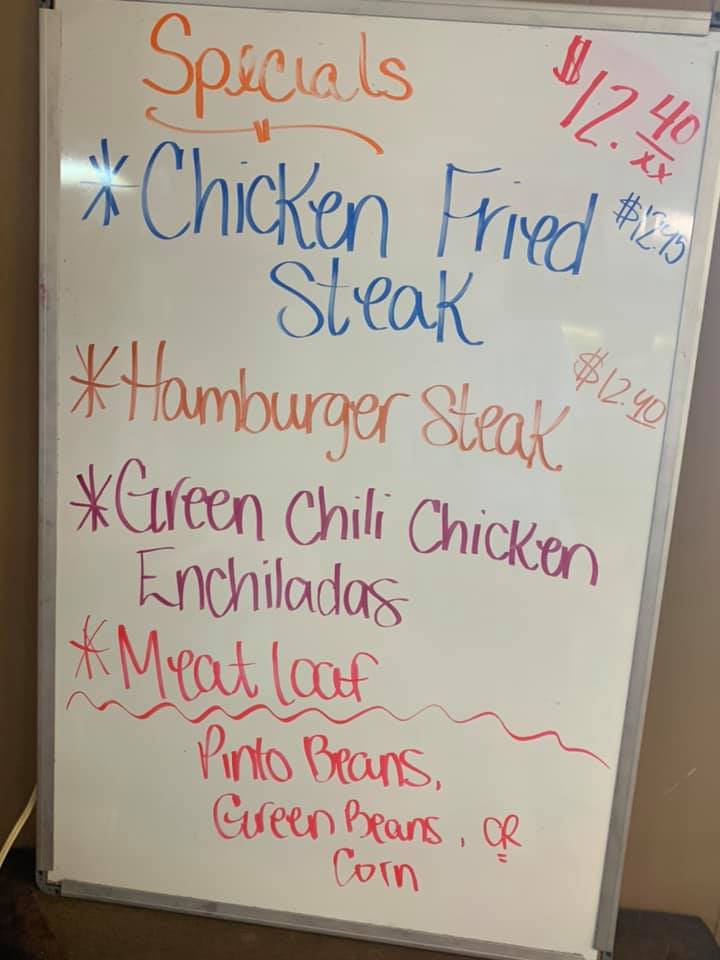 Specials
$12.40
xx
*Chicken Fried $12.95
Steak
*Hamburger Steak $12.40
*Green Chili Chicken
Enchiladas
*Meat loaf
Pinto Beans,
Green Beans, OR
Corn